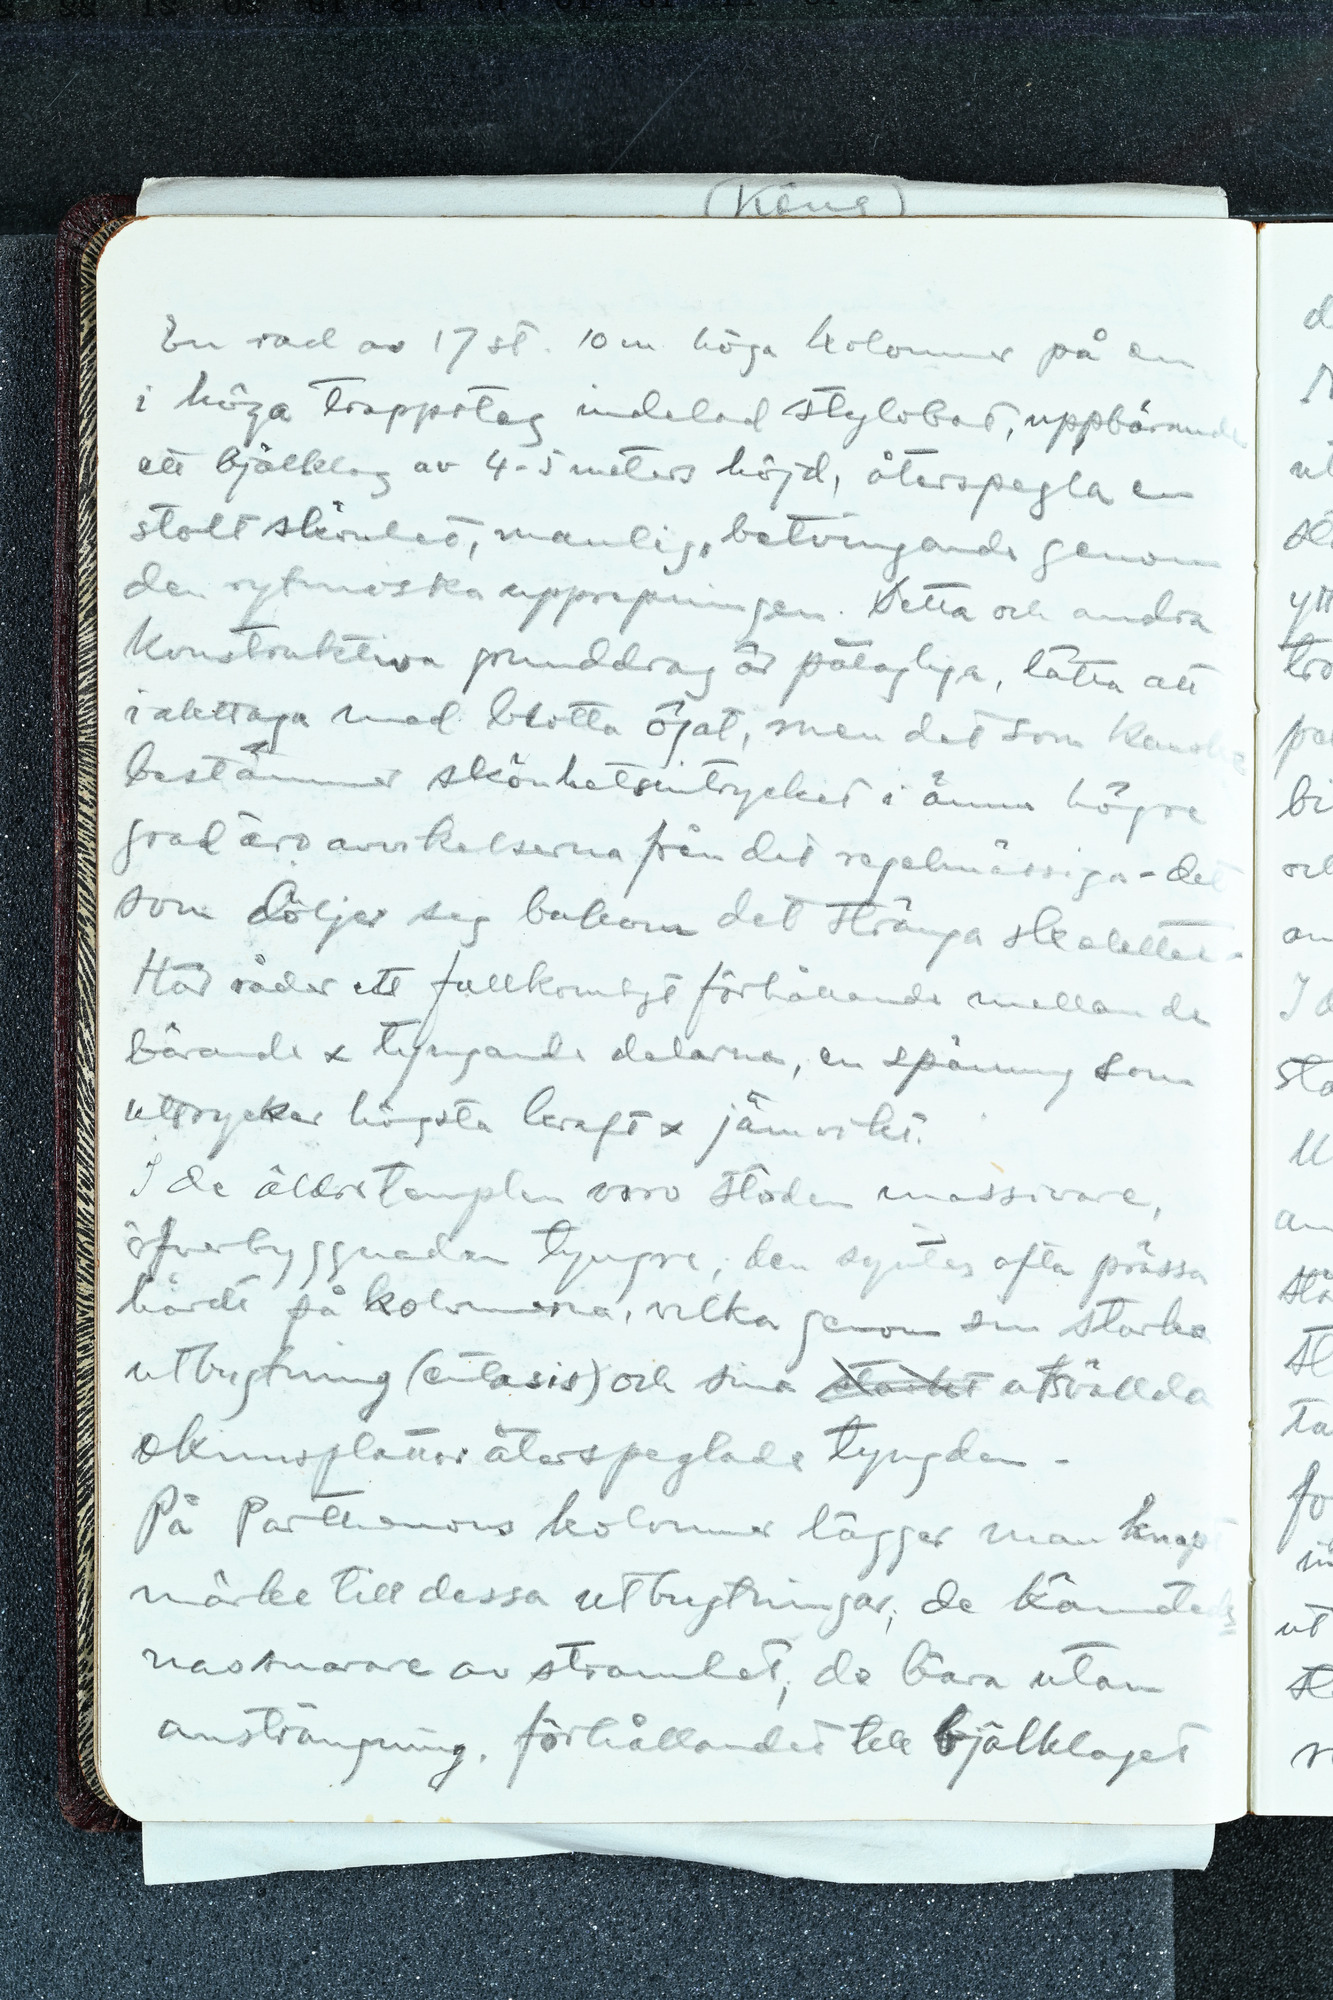 En rad av 17 st. 10 m höga kolonner på en
i höga trappsteg indelad stylobat, uppbärande
ett bjälklag av 4-5 meters höjd, återspegla en
stolt skönhet, manlig, betvingande genom
den rytmiska upprepningen. Detta och andra
konstruktiva grunddrag är påtagliga, lätta att
iakttaga med blotta ögat, men det som kanske
bestämmer skönhetsintrycket i ännu högre
grad äro avvikelserna från det regelmässiga - det
som döljer sig bakom det stränga skelettet -
Här råder ett fullkomligt förhållande mellan de
bärande x tyngande delarna, en spänning som
uttrycker högsta kraft x jämvikt.
I de äldre templen voro stöden massivare,
öfverbyggnaden tyngre, den syntes ofta prässa
hårdt på kolonnerna, vilka genom sin starka
utbugtning (entasis) och sina utsvällda
plattor återspeglade tyngden -
På Parthenons kolonner lägger man knapt
märke till dessa utbugtningar, de
snarare av stramhet, de bära utan
ansträngning. förhållandet till bjälklaget